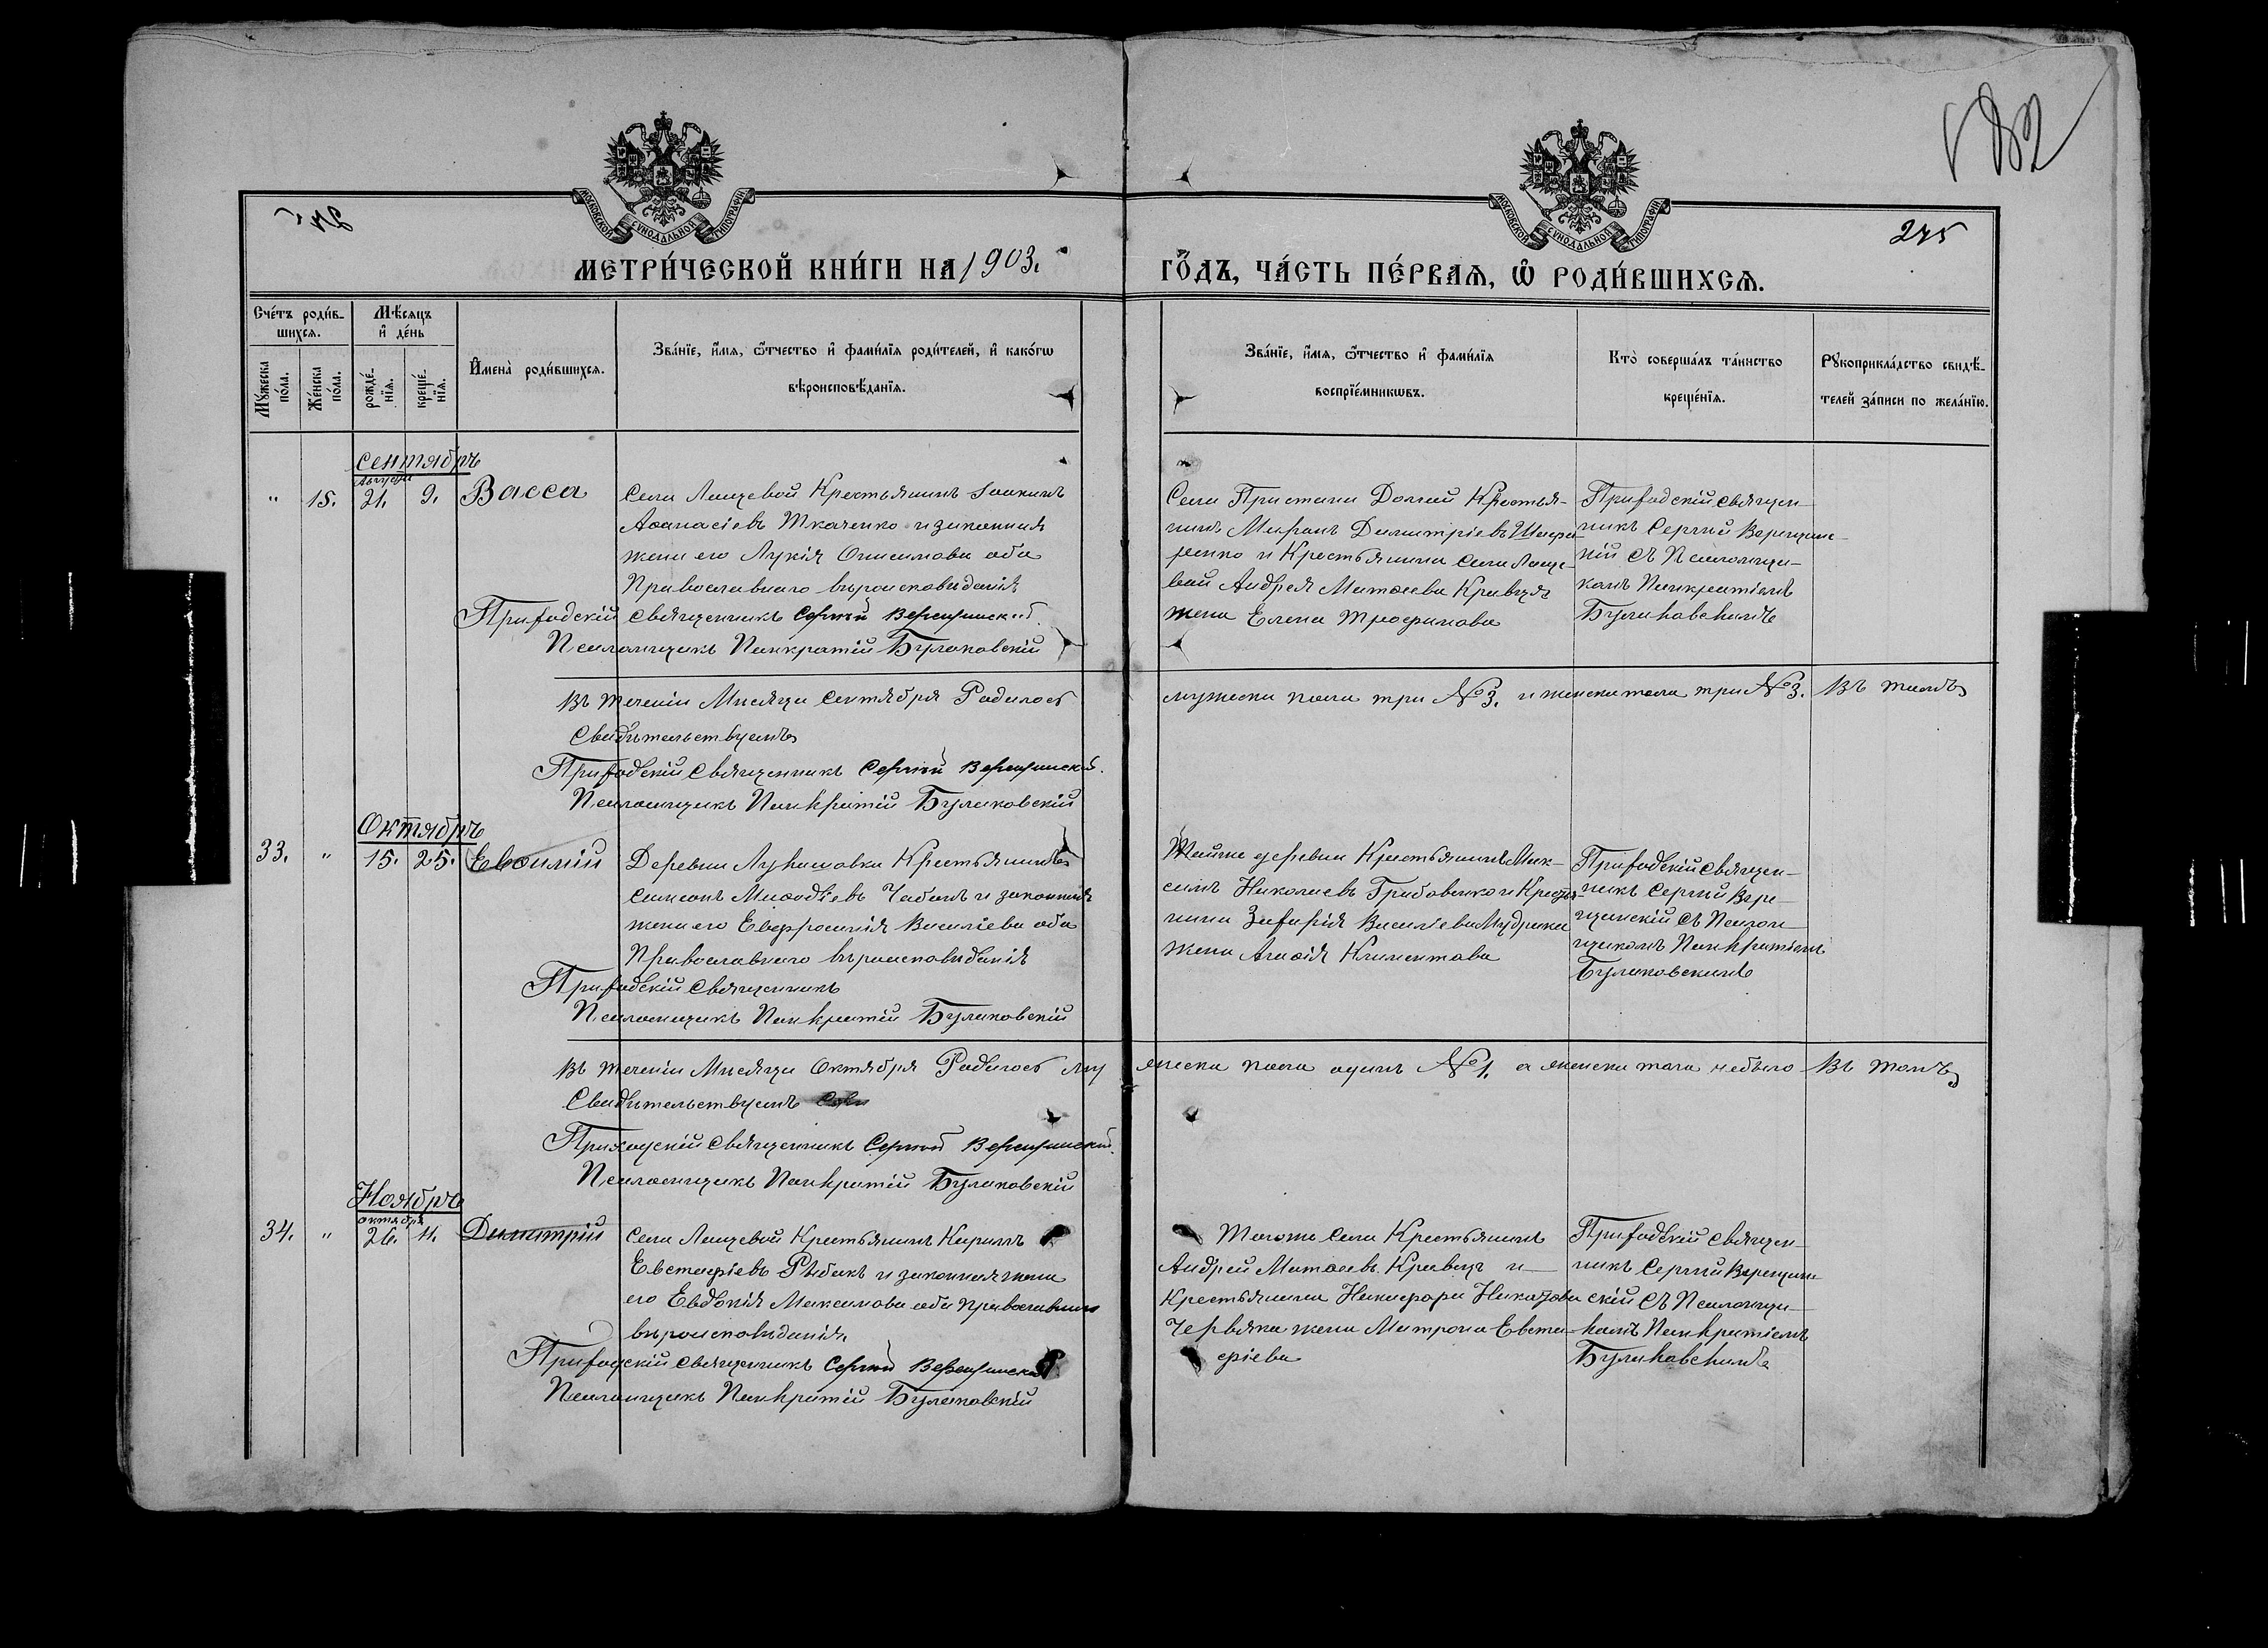 МОСКОВСКОЙ СѴНОДАЛЬНОЙ ТИПОГРАФІИ
МОСКОВСКОЙ СѴНОДАЛЬНОЙ ТИПОГРАФІИ
245
МЕТРИ́ЧЕСКОЙ КНИ́ГИ НА 1903.
ГО́ДЪ, ЧА́СТЬ ПЕ́РВАѦ, Ѡ РОДИ́ВШИХСѦ.
Сче́тъ роди́в-
шихсѧ.
Мꙋ́жеска по́ла.
Же́нска по́ла.
Мѣ́сѧцъ
и҆ де́нь
рожде́-
нїѧ.
креще́-
нїѧ.
И҆мена̀ роди́вшихсѧ.
Зва́нїе, и҆́мѧ, ѻ҆́тчество и҆ фами́лїѧ роди́телей, и҆ како́гѡ
вѣроисповѣ́данїѧ.
Зва́нїе, и҆́мѧ, ѻ҆́тчество и҆ фами́лїѧ
воспрїе́мникѡвъ.
Кто̀ соверша́лъ та́инство
креще́нїѧ.
Рꙋкоприкла́дство свидѣ́-
телей за́писи по жела́нїю.
Сентябрь
Августа
" 15. 21. 9. Васса
Села Лащевой Крестьянинъ Іоакимъ
Аѳанасіевъ Ткаченко и законная
жена его Лукія Онисимова оба
Православнаго вѣроисповѣданія
Приходскій Священникъ Сергій Верещинскій.
Псаломщикъ Панкратій Булаковскій
Села Пристани Долгой Крестья-
нинъ Миронъ Димитріевъ
и Крестьянина Села Лаще-
вой Андрея Матѳеева Кравця
жена Елена Трофимова
Приходскій Священ-
никъ Сергій Верещин-
кій съ Псаломщи-
комъ Панкратіемъ
Булаковскимъ
Въ теченіи Мѣсяца Сентября Родилось
мужеска пола три №3. и женска пола три №3. Въ томъ
Свидѣтельствуемъ
Приходскій Священникъ Сергій Верещинскій.
Псаломщикъ Панкратій Булаковскій
Октябрь
33. " 15. 25. Евѳимій
Деревни Крестьянинъ
Симеонъ Меѳодіевъ Чабанъ и законная
жена его Евфросинія Василіева оба
Православнаго вѣроисповѣданія
Приходскій Священникъ
Псаломщикъ Панкратій Булаковскій
Тойже деревни Крестьянинъ Мак-
симъ Николаевъ Грибовенко и Крестья-
нина Захарія Василіева Мудрака
жена Агаѳія Климентова
Приходскій Священ-
никъ Сергій Вере-
щинскій съ Псалом-
щикомъ Панкратіемъ
Булаковскимъ
Въ теченіи Мѣсяца Октября Родилось му
жеска пола одинъ №1. а женска пола небыло Въ томъ
Свидѣтельствуемъ
Приходскій Священникъ Сергій Верещинскій.
Псаломщикъ Панкратій Булаковскій
Ноябрь
октября
34. " 26. 11. Димитрій
Села Лащевой Крестьянинъ Кириллъ
Евстафіевъ Рыбакъ и законная жена
его Евдокія Максимова оба Православнаго
вѣроисповѣданія
Приходскій Священникъ Сергій Верещинскій.
Псаломщикъ Панкратій Булаковскій
Тогоже Села Крестьянинъ
Андрей Матѳеевъ Кравецъ и
Крестьянина Никифора
Червяка жена Матрона Евста-
фіева
Приходскій Священ-
никъ Сергій Верещин-
скій съ Псаломщи-
комъ Панкратіемъ
Булаковскимъ